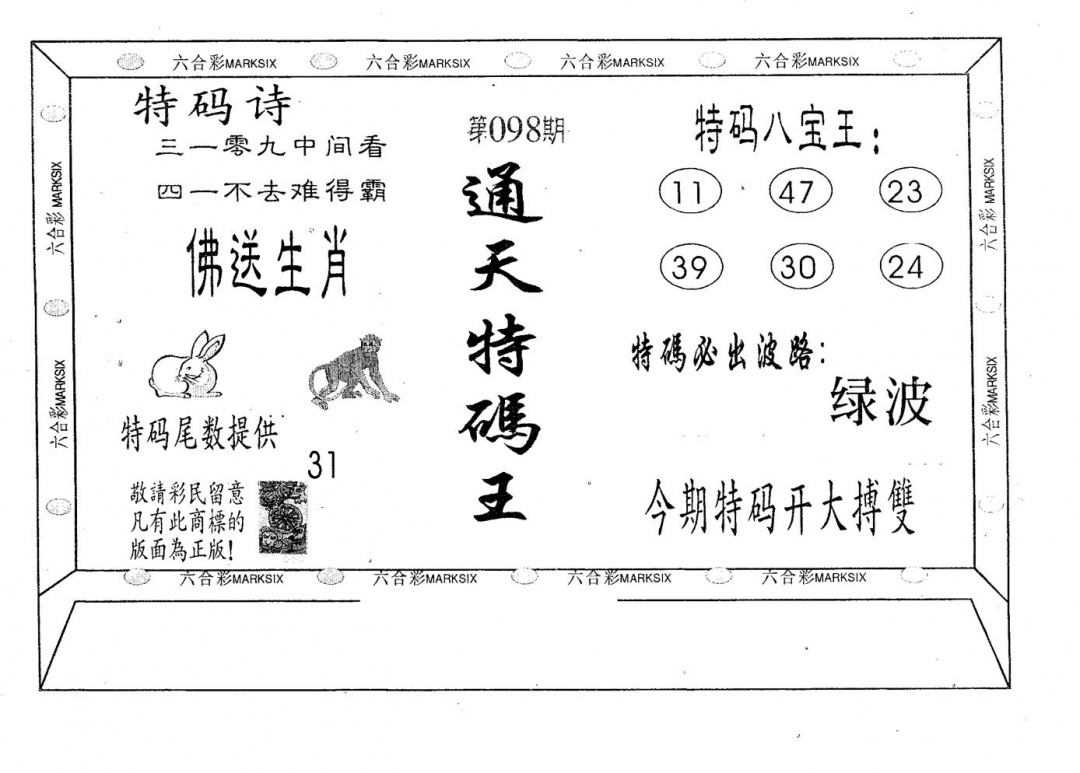 六合彩MARKSIX 六合彩MARKSIX 六合彩MARKSIX 六合彩MARKSIX
六合彩 MARKSIX
六合彩MARKSIX
特码诗
三一零九中间看
四一不去难得霸
佛送生肖
特码尾数提供
31
敬請彩民留意
凡有此商標的
版面為正版!
第098期
通
天
特
碼
王
特码八宝王:
11 47 23
39 30 24
特碼必出波路:
绿波
今期特码开大搏雙
六合彩 MARKSIX
六合彩MARKSIX
六合彩MARKSIX 六合彩MARKSIX 六合彩MARKSIX 六合彩MARKSIX